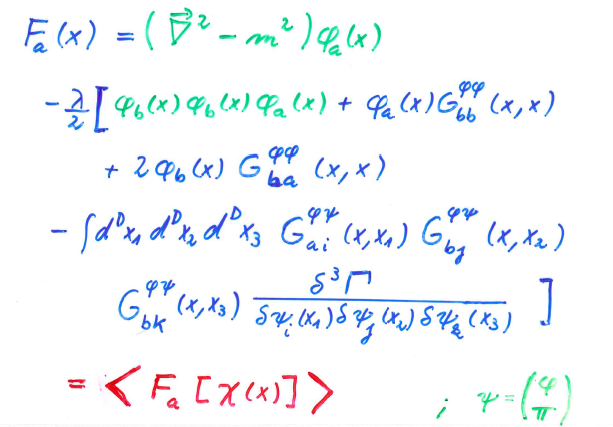 F_a(x) = (∇⃗² − m²) φ_a(x)
− λ/2 [ φ_b(x) φ_b(x) φ_a(x) + φ_a(x) G^{φφ}_{bb}(x,x)
+ 2 φ_b(x) G^{φφ}_{ba}(x,x)
− ∫d^Dx₁ d^Dx₂ d^Dx₃ G^{φψ}_{ai}(x,x₁) G^{φψ}_{bj}(x,x₂)
G^{φψ}_{bk}(x,x₃) δ³Γ / δψ_i(x₁) δψ_j(x₂) δψ_k(x₃) ]
= < F_a [χ(x)] > ; ψ = (φ π)